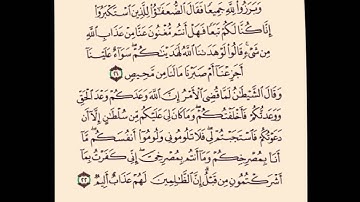 وَبَرَزُوا۟ لِلَّهِ جَمِيعًا فَقَالَ ٱلضُّعَفَـٰٓؤُا۟ لِلَّذِينَ ٱسْتَكْبَرُوٓا۟
إِنَّا كُنَّا لَكُمْ تَبَعًا فَهَلْ أَنتُم مُّغْنُونَ عَنَّا مِنْ عَذَابِ ٱللَّهِ
مِن شَىْءٍ ۚ قَالُوا۟ لَوْ هَدَىٰنَا ٱللَّهُ لَهَدَيْنَـٰكُمْ ۖ سَوَآءٌ عَلَيْنَآ
أَجَزِعْنَآ أَمْ صَبَرْنَا مَا لَنَا مِن مَّحِيصٍ ٢١
وَقَالَ ٱلشَّيْطَـٰنُ لَمَّا قُضِىَ ٱلْأَمْرُ إِنَّ ٱللَّهَ وَعَدَكُمْ وَعْدَ ٱلْحَقِّ
وَوَعَدتُّكُمْ فَأَخْلَفْتُكُمْ ۖ وَمَا كَانَ لِىَ عَلَيْكُم مِّن سُلْطَـٰنٍ إِلَّآ أَن
دَعَوْتُكُمْ فَٱسْتَجَبْتُمْ لِى ۖ فَلَا تَلُومُونِى وَلُومُوٓا۟ أَنفُسَكُم ۖ مَّآ
أَنَا۠ بِمُصْرِخِكُمْ وَمَآ أَنتُم بِمُصْرِخِىَّ ۖ إِنِّى كَفَرْتُ بِمَآ
أَشْرَكْتُمُونِ مِن قَبْلُ ۗ إِنَّ ٱلظَّـٰلِمِينَ لَهُمْ عَذَابٌ أَلِيمٌ ٢٢